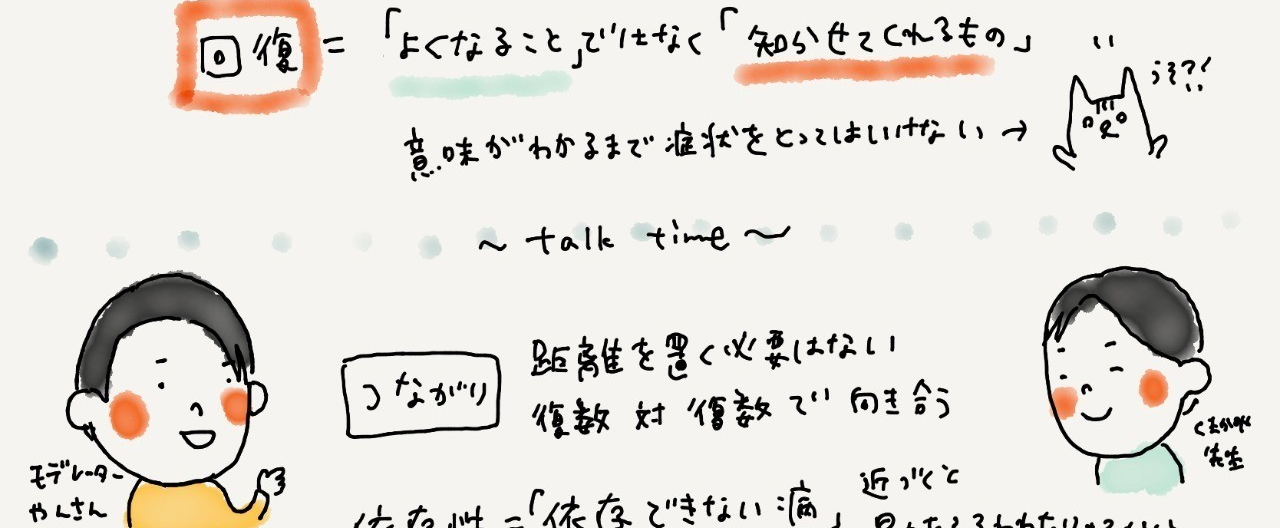 回復 = 「よくなること」ではなく「知らせてくれるもの」
うそ?!
意味がわかるまで症状をとってはいけない →
~ talk time ~
つながり
距離を置く必要はない
復数 対 復数で向き合う
モデレーター
やんさん
先生
近づくと
依存性 = 「依存できない病」